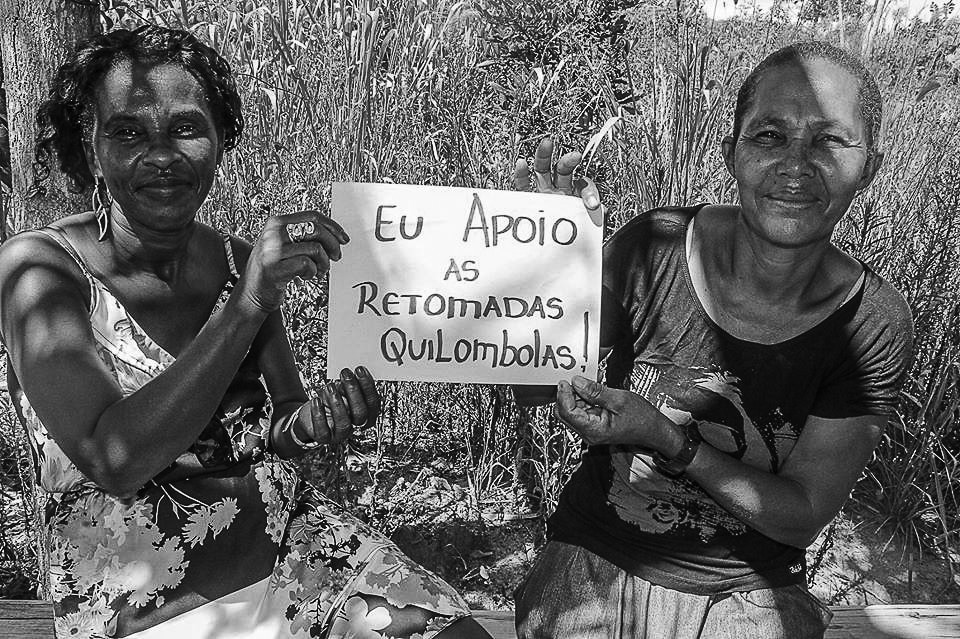 EU APOIO
AS
RETOMADAS
QUILOMBOLAS!